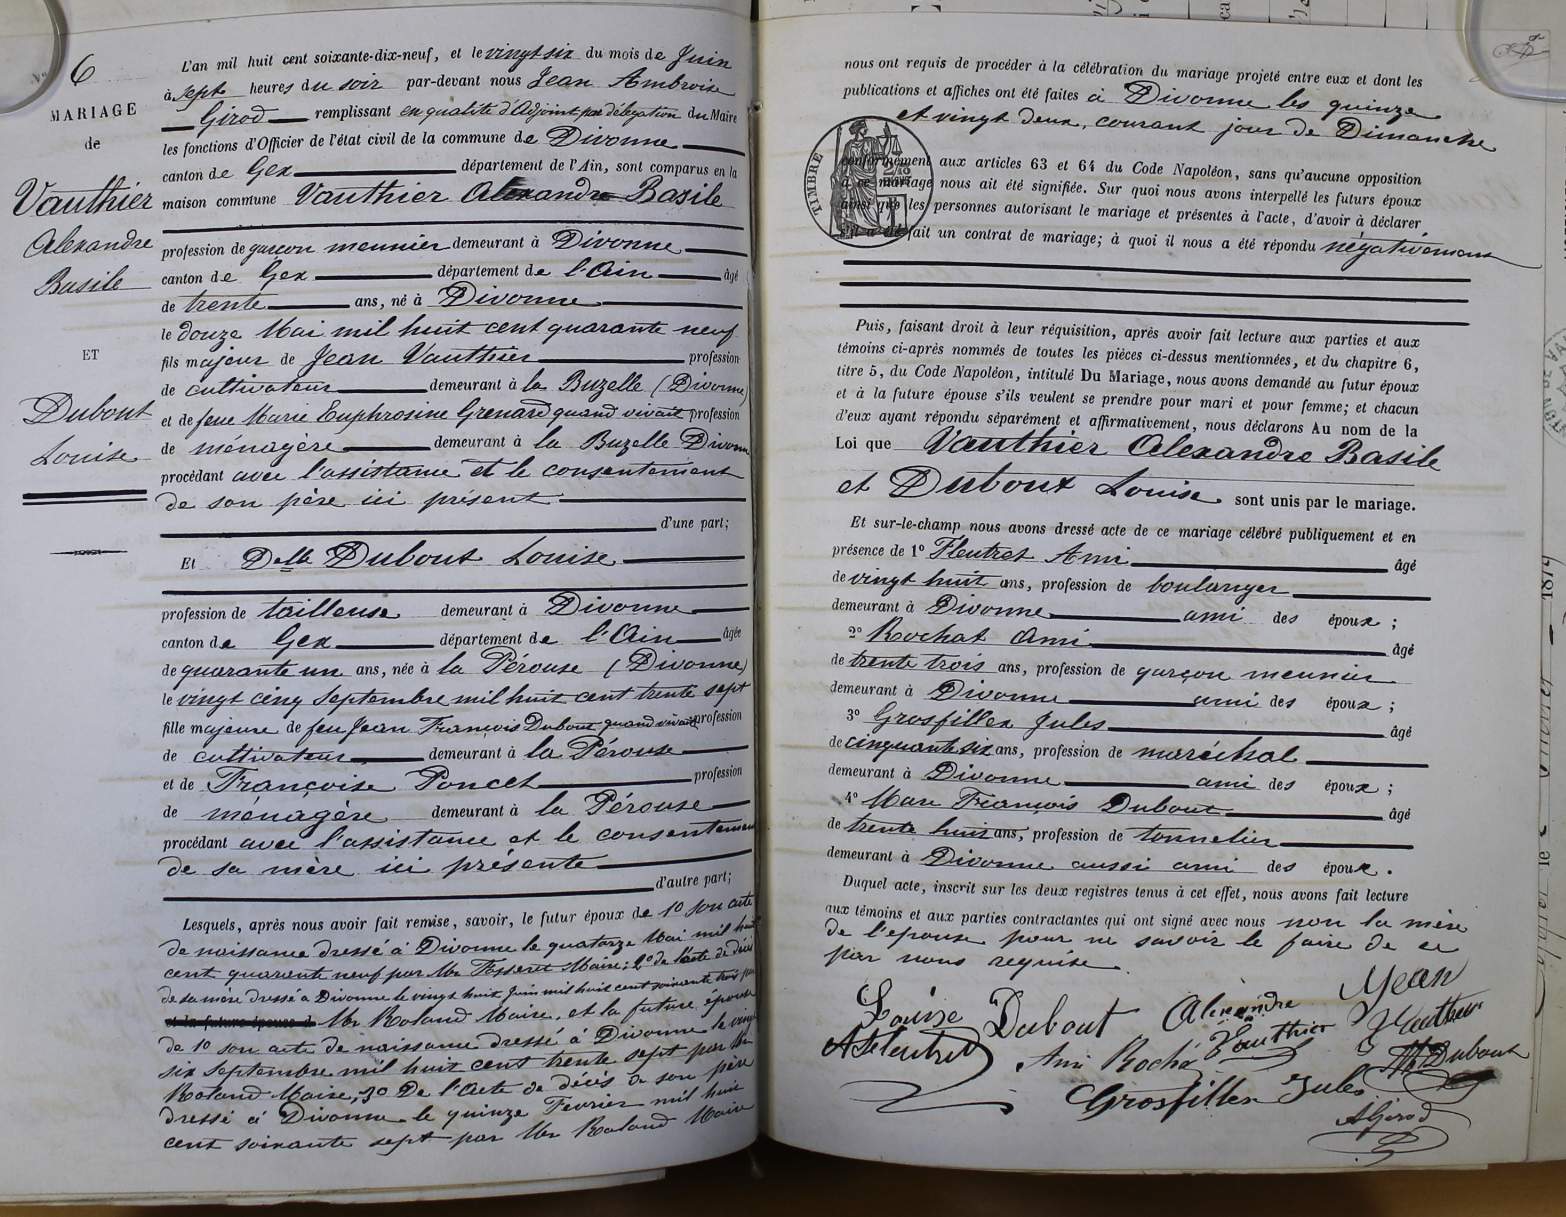 N° 6
MARIAGE
de
Vauthier
Alexandre
Basile
ET
Dubout
Louise
L'an mil huit cent soixante-dix-neuf, et le vingt six du mois de Juin
à sept heures du soir par-devant nous Jean Ambroise
Girod remplissant en qualité d'Adjoint par délégation du Maire
les fonctions d'Officier de l'état civil de la commune de Divonne
canton de Gex département de l'Ain, sont comparus en la
maison commune Vauthier Alexandre Basile
profession de garçon meunier demeurant à Divonne
canton de Gex département de l'Ain âgé
de trente ans, né à Divonne
le douze Mai mil huit cent quarante neuf
fils majeur de Jean Vauthier profession
de cultivateur demeurant à la Buzelle (Divonne)
et de feue Marie Euphrosine Grenard quand vivait profession
de ménagère demeurant à la Buzelle Divonne
procédant avec l'assistance et le consentement
de son père ici présent
d'une part;
Et Delle Dubout Louise
profession de tailleuse demeurant à Divonne
canton de Gex département de l'Ain âgée
de quarante un ans, née à la Pérouse (Divonne)
le vingt cinq Septembre mil huit cent trente sept
fille majeure de feu Jean François Dubout quand vivait profession
de cultivateur demeurant à la Pérouse
et de Françoise Poncet profession
de ménagère demeurant à la Pérouse
procédant avec l'assistance et le consentement
de sa mère ici présente
d'autre part;
Lesquels, après nous avoir fait remise, savoir, le futur époux de 1° son acte
de naissance dressé à Divonne le quatorze Mai mil huit
cent quarante neuf par Mr Maire; 2° de l'acte de décès
de sa mère dressé à Divonne le vingt huit Juin mil huit cent soixante trois par
et la future épouse d Mr Roland Maire, et la future épouse
de 1° son acte de naissance dressé à Divonne le vingt
six Septembre mil huit cent trente sept par Mr
Roland Maire, 3° De l'Acte de décès de son père
dressé à Divonne le quinze Fevrier mil huit
cent soixante sept par Mr Roland Maire
nous ont requis de procéder à la célébration du mariage projeté entre eux et dont les
publications et affiches ont été faites à Divonne les quinze
et vingt deux, courant jour de Dimanche
TIMBRE
conformément aux articles 63 et 64 du Code Napoléon, sans qu'aucune opposition
à ce mariage nous ait été signifiée. Sur quoi nous avons interpellé les futurs époux
ainsi que les personnes autorisant le mariage et présentes à l'acte, d'avoir à déclarer
s'il a été fait un contrat de mariage; à quoi il nous a été répondu négativement
Puis, faisant droit à leur réquisition, après avoir fait lecture aux parties et aux
témoins ci-après nommés de toutes les pièces ci-dessus mentionnées, et du chapitre 6,
titre 5, du Code Napoléon, intitulé Du Mariage, nous avons demandé au futur époux
et à la future épouse s'ils veulent se prendre pour mari et pour femme; et chacun
d'eux ayant répondu séparément et affirmativement, nous déclarons Au nom de la
Loi que Vauthier Alexandre Basile
et Dubout Louise sont unis par le mariage.
Et sur-le-champ nous avons dressé acte de ce mariage célébré publiquement et en
présence de 1° Fleutret Ami âgé
de vingt huit ans, profession de boulanger
demeurant à Divonne ami des époux;
2° Rochat Ami âgé
de trente trois ans, profession de garçon meunier
demeurant à Divonne ami des époux;
3° Grosfillex Jules âgé
de cinquante six ans, profession de maréchal
demeurant à Divonne ami des époux;
4° Marc François Dubout âgé
de trente huit ans, profession de tonnelier
demeurant à Divonne aussi ami des époux.
Duquel acte, inscrit sur les deux registres tenus à cet effet, nous avons fait lecture
aux témoins et aux parties contractantes qui ont signé avec nous non la mère
de l'épouse pour ne savoir le faire de ce
par nous requise.
Louise Dubout Alexandre Vauthier Jean Vauthier
A Fleutret Ami Rochat Dubout
Grosfillex Jules
A Girod